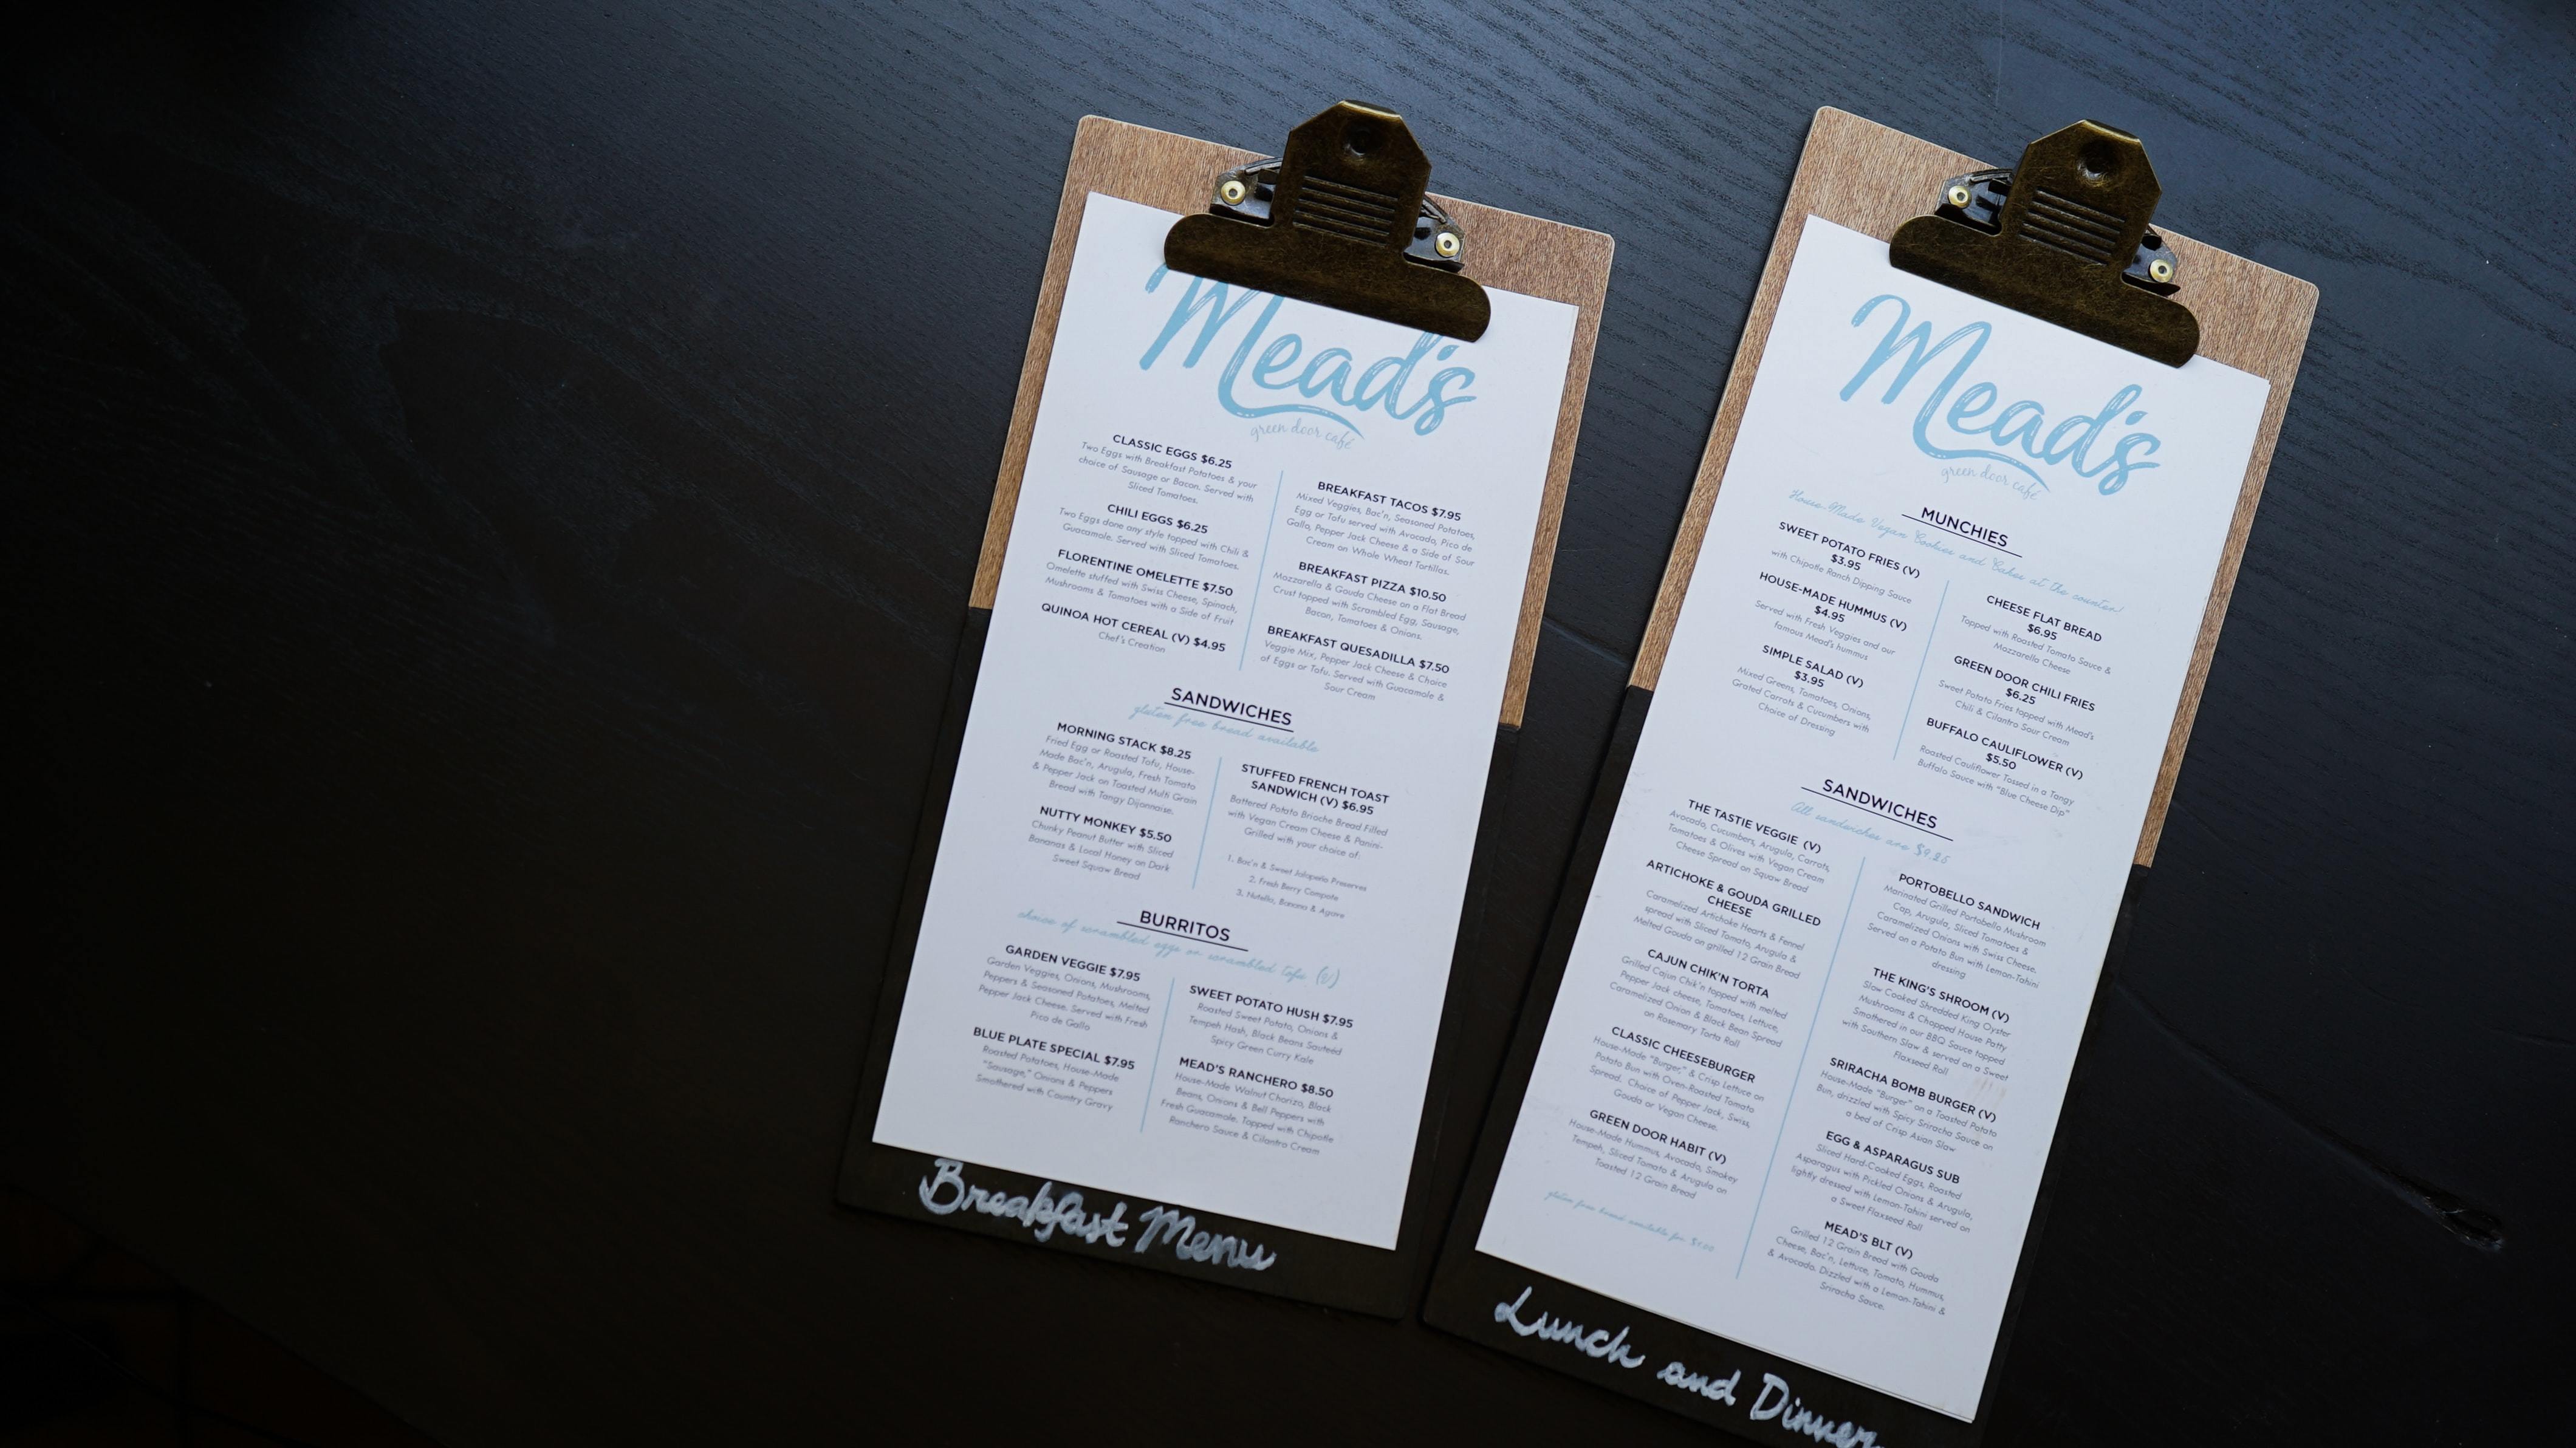 Mead's
green door café
CLASSIC EGGS $6.25
Two Eggs with Breakfast Potatoes & your
choice of Sausage or Bacon. Served with
Sliced Tomatoes.
CHILI EGGS $6.25
Two Eggs done any style topped with Chili &
Guacamole. Served with Sliced Tomatoes.
FLORENTINE OMELETTE $7.50
Omelette stuffed with Swiss Cheese, Spinach,
Mushrooms & Tomatoes with a Side of Fruit
QUINOA HOT CEREAL (V) $4.95
Chef's Creation
BREAKFAST TACOS $7.95
Mixed Veggies, Bac'n, Seasoned Potatoes,
Egg or Tofu served with Avocado, Pico de
Gallo, Pepper Jack Cheese & a Side of Sour
Cream on Whole Wheat Tortillas.
BREAKFAST PIZZA $10.50
Mozzarella & Gouda Cheese on a Flat Bread
Crust topped with Scrambled Egg, Sausage,
Bacon, Tomatoes & Onions.
BREAKFAST QUESADILLA $7.50
Veggie Mix, Pepper Jack Cheese & Choice
of Eggs or Tofu. Served with Guacamole &
Sour Cream
SANDWICHES
gluten free bread available
MORNING STACK $8.25
Fried Egg or Roasted Tofu, House-
Made Bac'n, Arugula, Fresh Tomato
& Pepper Jack on Toasted Multi Grain
Bread with Tangy Dijonnaise.
NUTTY MONKEY $5.50
Chunky Peanut Butter with Sliced
Bananas & Local Honey on Dark
Sweet Squaw Bread
STUFFED FRENCH TOAST
SANDWICH (V) $6.95
Battered Potato Brioche Bread Filled
with Vegan Cream Cheese & Panini-
Grilled with your choice of:
1. Bac'n & Sweet Jalapeño Preserves
2. Fresh Berry Compote
3. Nutella, Banana & Agave
BURRITOS
choice of scrambled eggs or scrambled tofu (V)
GARDEN VEGGIE $7.95
Garden Veggies, Onions, Mushrooms,
Peppers & Seasoned Potatoes, Melted
Pepper Jack Cheese. Served with Fresh
Pico de Gallo
BLUE PLATE SPECIAL $7.95
Roasted Potatoes, House-Made
"Sausage," Onions & Peppers
Smothered with Country Gravy
SWEET POTATO HUSH $7.95
Roasted Sweet Potato, Onions &
Tempeh Hash, Black Beans Sautéed
Spicy Green Curry Kale
MEAD'S RANCHERO $8.50
House-Made Walnut Chorizo, Black
Beans, Onions & Bell Peppers with
Fresh Guacamole. Topped with Chipotle
Ranchero Sauce & Cilantro Cream
Breakfast Menu
Mead's
green door café
MUNCHIES
House-Made Vegan Cookies and Cakes at the counter!
SWEET POTATO FRIES (V)
$3.95
with Chipotle Ranch Dipping Sauce
HOUSE-MADE HUMMUS (V)
$4.95
Served with Fresh Veggies and our
famous Mead's hummus
SIMPLE SALAD (V)
$3.95
Mixed Greens, Tomatoes, Onions,
Grated Carrots & Cucumbers with
Choice of Dressing
CHEESE FLAT BREAD
$6.95
Topped with Roasted Tomato Sauce &
Mozzarella Cheese
GREEN DOOR CHILI FRIES
$6.25
Sweet Potato Fries topped with Mead's
Chili & Cilantro Sour Cream
BUFFALO CAULIFLOWER (V)
$5.50
Roasted Cauliflower Tossed in a Tangy
Buffalo Sauce with "Blue Cheese Dip"
SANDWICHES
All sandwiches are $9.25
THE TASTIE VEGGIE (V)
Avocado, Cucumbers, Arugula, Carrots,
Tomatoes & Olives with Vegan Cream
Cheese Spread on Squaw Bread
ARTICHOKE & GOUDA GRILLED
CHEESE
Caramelized Artichoke Hearts & Fennel
spread with Sliced Tomato, Arugula &
Melted Gouda on grilled 12 Grain Bread
CAJUN CHIK'N TORTA
Grilled Cajun Chik'n topped with melted
Pepper Jack cheese, Tomatoes, Lettuce,
Caramelized Onion & Black Bean Spread
on Rosemary Torta Roll
CLASSIC CHEESEBURGER
House-Made "Burger," & Crisp Lettuce on
Potato Bun with Oven-Roasted Tomato
Spread. Choice of Pepper Jack, Swiss,
Gouda or Vegan Cheese.
GREEN DOOR HABIT (V)
House-Made Hummus, Avocado, Smokey
Tempeh, Sliced Tomato & Arugula on
Toasted 12 Grain Bread
gluten free bread available for $1.00
PORTOBELLO SANDWICH
Marinated Grilled Portobello Mushroom
Cap, Arugula, Sliced Tomatoes &
Caramelized Onions with Swiss Cheese.
Served on a Potato Bun with Lemon-Tahini
dressing
THE KING'S SHROOM (V)
Slow Cooked Shredded King Oyster
Mushrooms & Chopped House Patty
Smothered in our BBQ Sauce topped
with Southern Slaw & served on a Sweet
Flaxseed Roll
SRIRACHA BOMB BURGER (V)
House-Made "Burger" on a Toasted Potato
Bun, drizzled with Spicy Sriracha Sauce on
a bed of Crisp Asian Slaw
EGG & ASPARAGUS SUB
Sliced Hard-Cooked Eggs, Roasted
Asparagus with Pickled Onions & Arugula,
lightly dressed with Lemon-Tahini served on
a Sweet Flaxseed Roll
MEAD'S BLT (V)
Grilled 12 Grain Bread with Gouda
Cheese, Bac'n, Lettuce, Tomato, Hummus,
& Avocado. Dizzled with a Lemon-Tahini &
Sriracha Sauce.
Lunch and Dinner